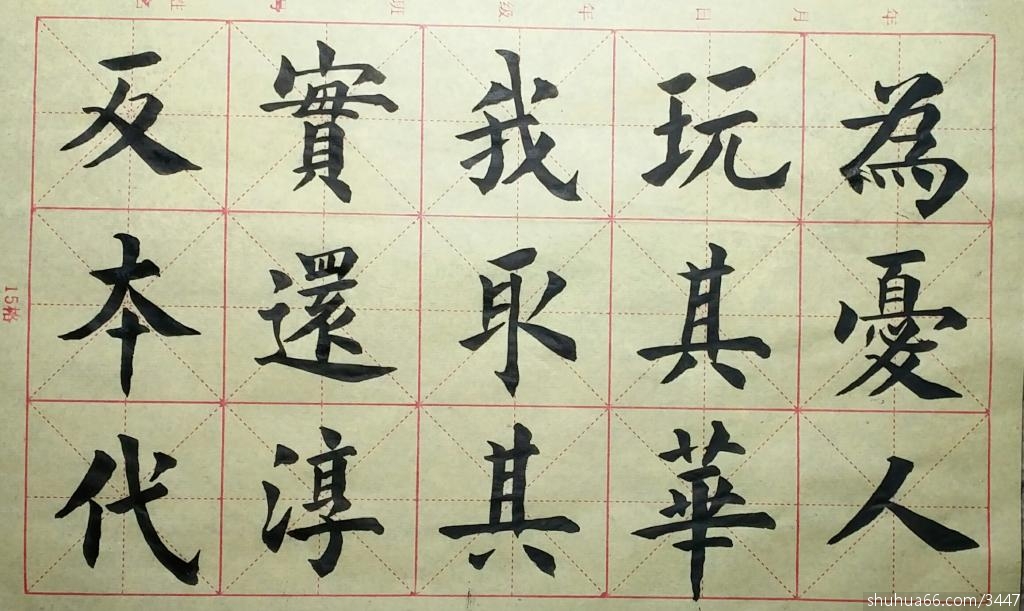 為憂人
玩其華
我取其
實還淳
反本代
年 月 日 年 级 班
15格
shuhua66.com/3447